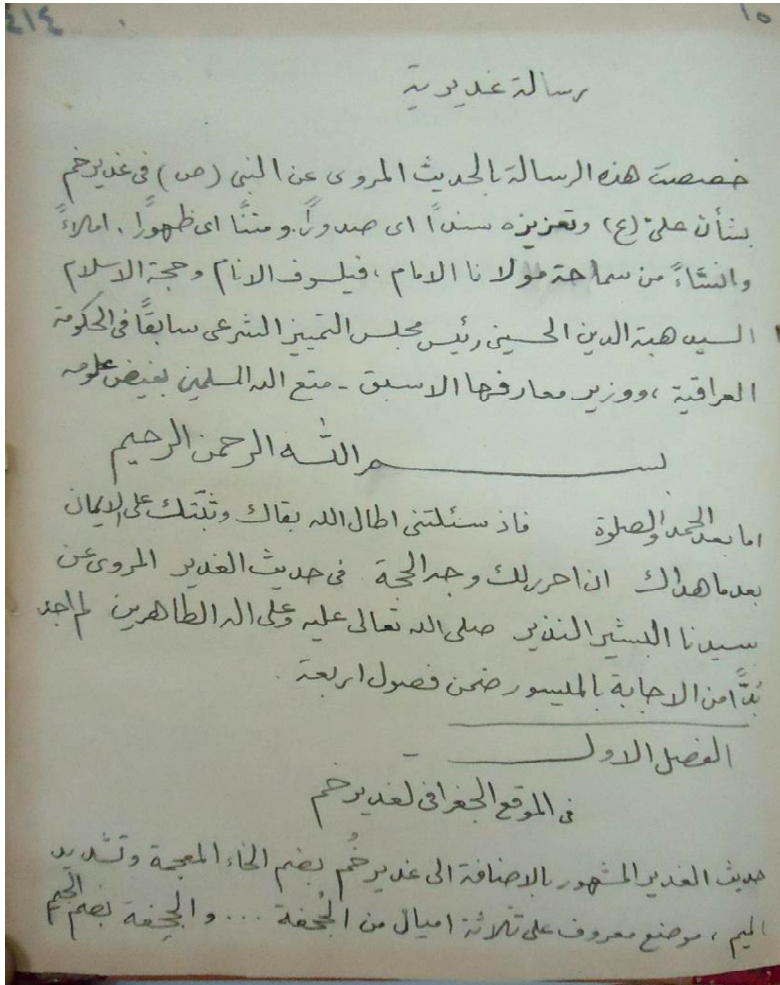 ٤١٤ ١٥
رسالة غديرية
خصصت هذه الرسالة بالحديث المروى عن النبي (ص) فى غدير خم
بشأن علىّ (ع) وتعزيزه سنداً اى صدوراً. ومتناً اى ظهوراً. املاءً
وانشاءً من سماحة مولانا الامام ، فيلسوف الانام وحجة الاسلام
السيد هبة الدين الحسينى رئيس مجلس التمييز الشرعى سابقاً فى الحكومة
العراقية ، ووزير معارفها الاسبق - متع الله المسلمين بفيض علومه
بسم الله الرحمن الرحيم
اما بعد الحمد والصلوة فاذ سئلتنى اطال الله بقاك وثبّتك على الايمان
بعد ما هداك ان احرر لك وجه الحجة فى حديث الغدير المروى عن
سيدنا البشير النذير صلى الله تعالى عليه وعلى اله الطاهرين لم اجد
بُدًّا من الاجابة بالميسور ضمن فصول اربعة .
الفصل الاول -
فى الموقع الجغرافى لغدير خم
حديث الغدير المشهور بالاضافة الى غدير خُم بضم الخاء المعجمة وتشديد
الميم ، موضع معروف على ثلاثة اميال من الجُحفة ... والجحفة بضم الجيم